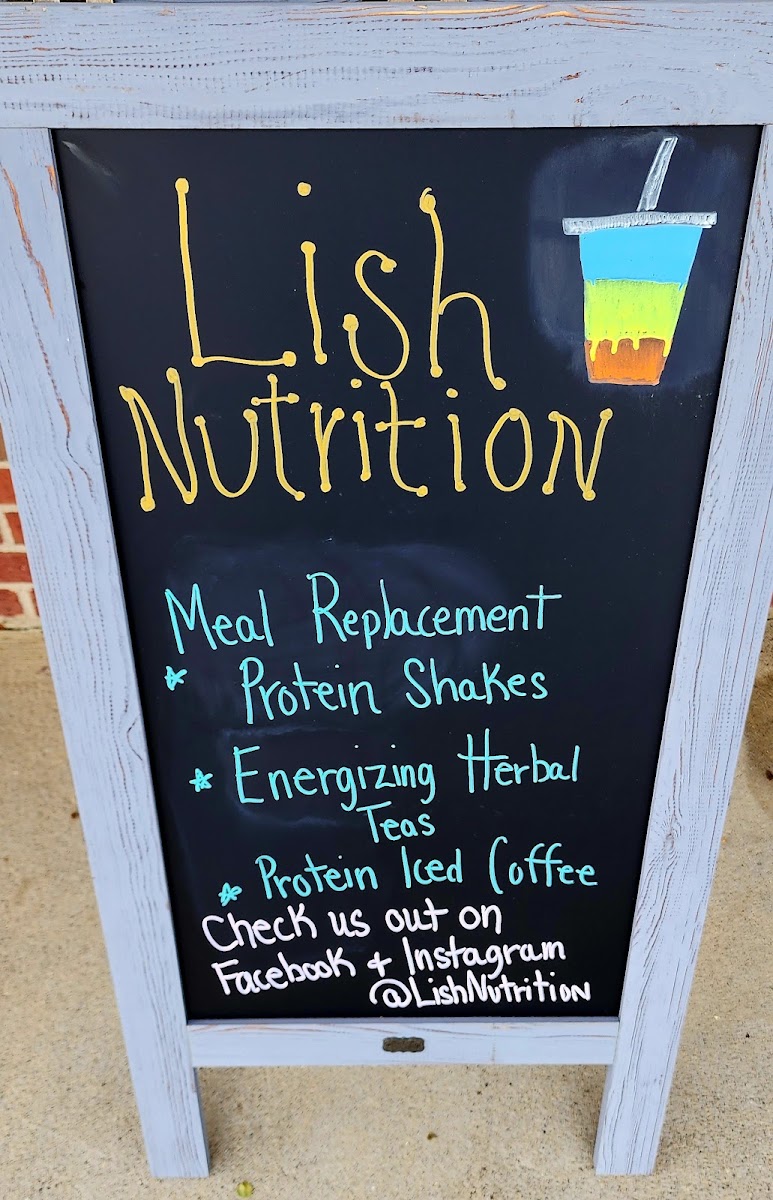 Lish
Nutrition
Meal Replacement
* Protein Shakes
* Energizing Herbal
Teas
* Protein Iced Coffee
Check us out on
Facebook + Instagram
@LishNutrition